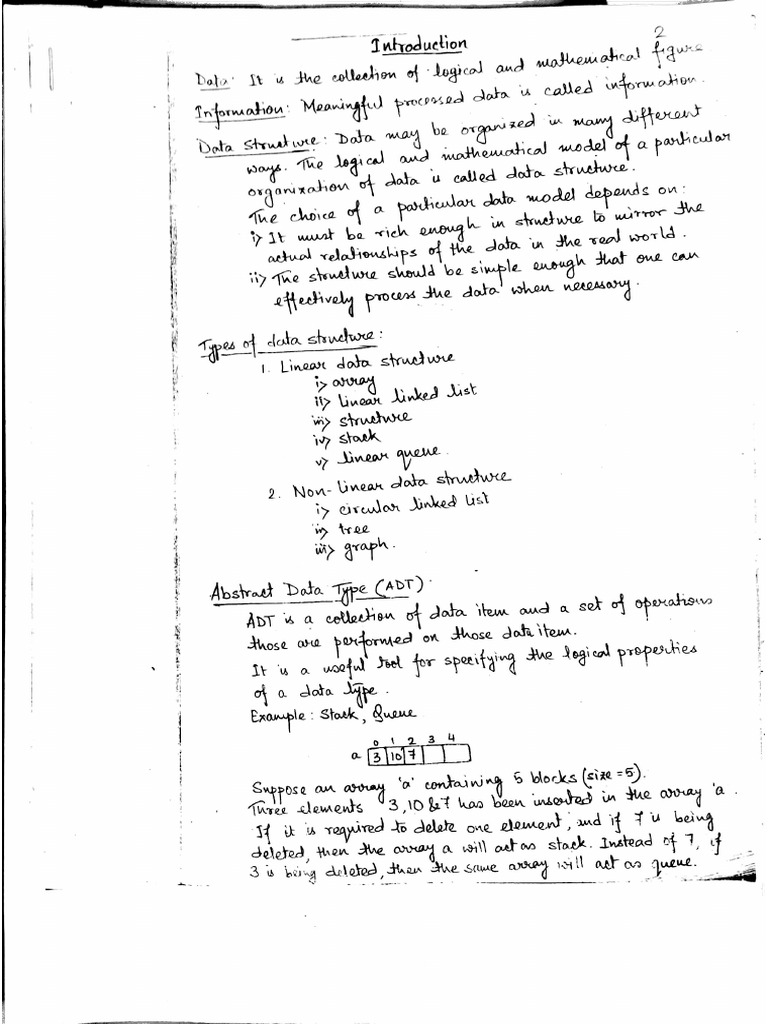 2
Introduction
Data: It is the collection of logical and mathematical figure
Information: Meaningful processed data is called information.
Data Structure: Data may be organized in many different
ways. The logical and mathematical model of a particular
organization of data is called data structure.
The choice of a particular data model depends on:
i) It must be rich enough in structure to mirror the
actual relationships of the data in the real world.
ii) The structure should be simple enough that one can
effectively process the data when necessary.
Types of data structure:
1. Linear data structure
i) array
ii) linear linked list
iii) structure
iv) stack
v) linear queue.
2. Non-linear data structure
i) circular linked list
ii) tree
iii) graph.
Abstract Data Type (ADT):
ADT is a collection of data item and a set of operations
those are performed on those data item.
It is a useful tool for specifying the logical properties
of a data type.
Example: Stack, Queue
0 1 2 3 4
a 3 10 7
Suppose an array 'a' containing 5 blocks (size = 5).
Three elements 3, 10 & 7 has been inserted in the array 'a.
If it is required to delete one element, and if 7 is being
deleted, then the array a will act as stack. Instead of 7, if
3 is being deleted, then the same array will act as queue.